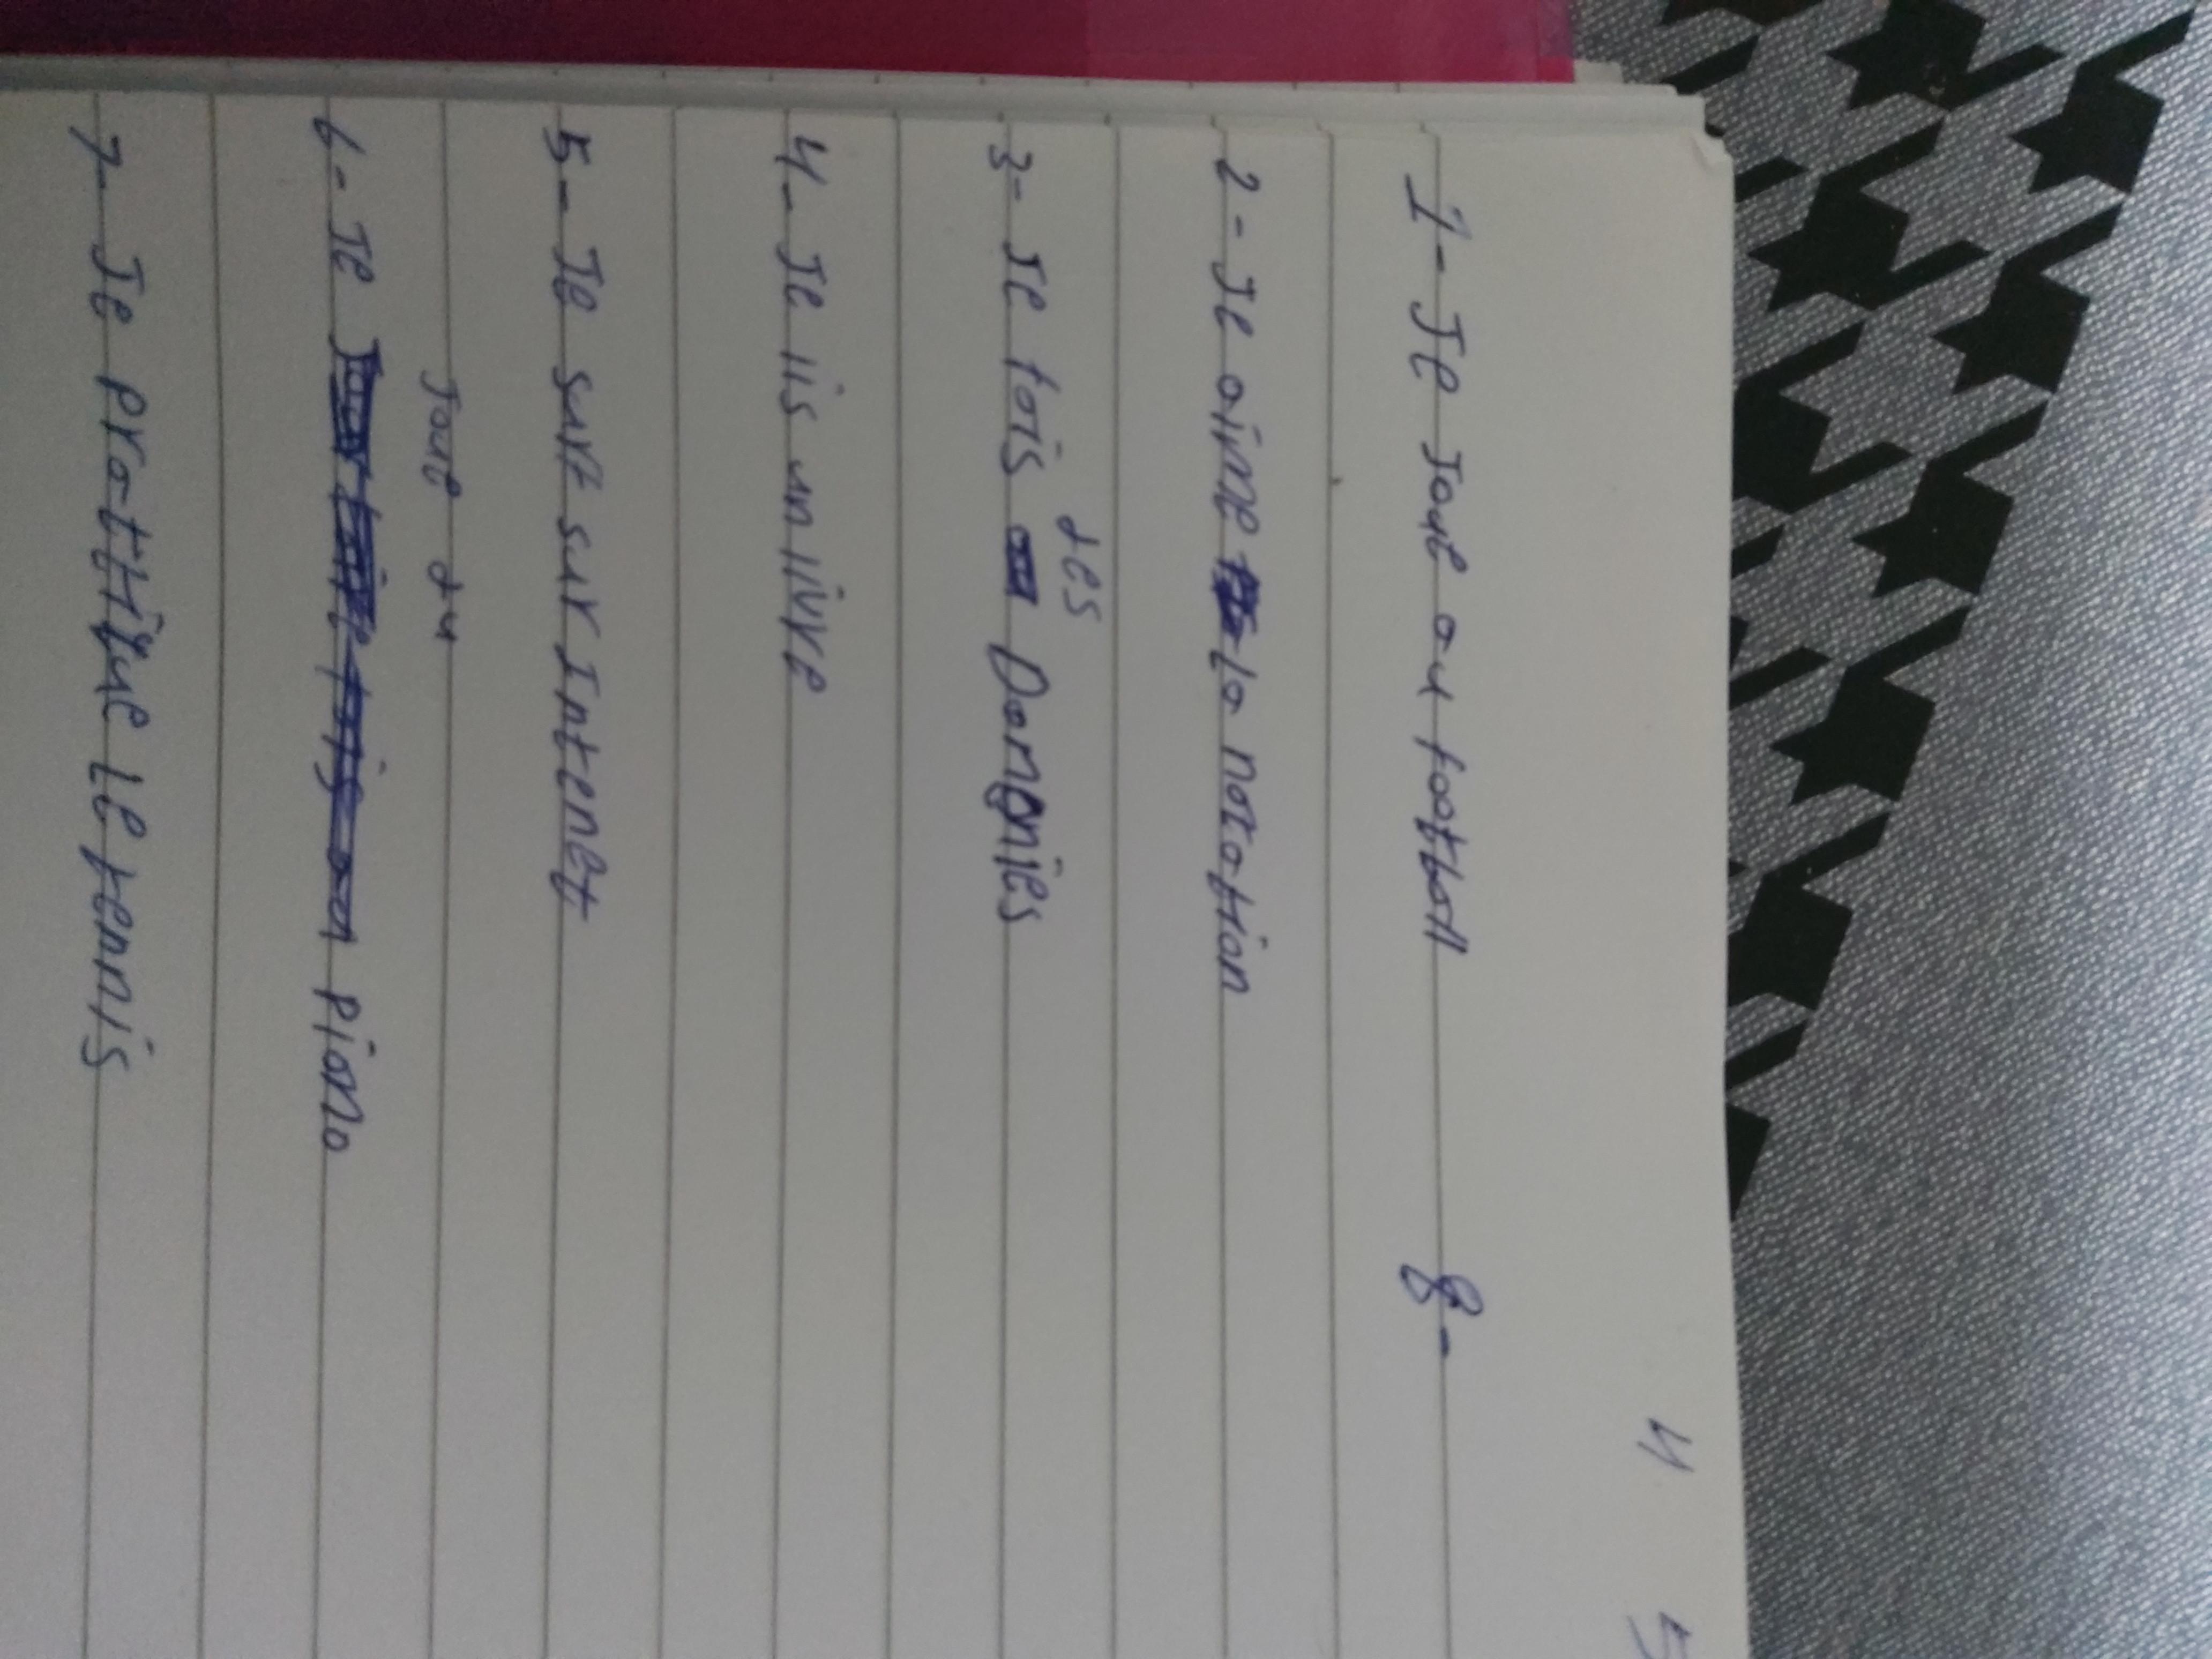 4 5
1- Je Joue au football 8-
2- Je aime la natation
des
3- Je fais Dargonies
4- Je lis un livre
5- Je surf sur Intenet
Joue du
6- Je piano
7- Je prattique le tennis